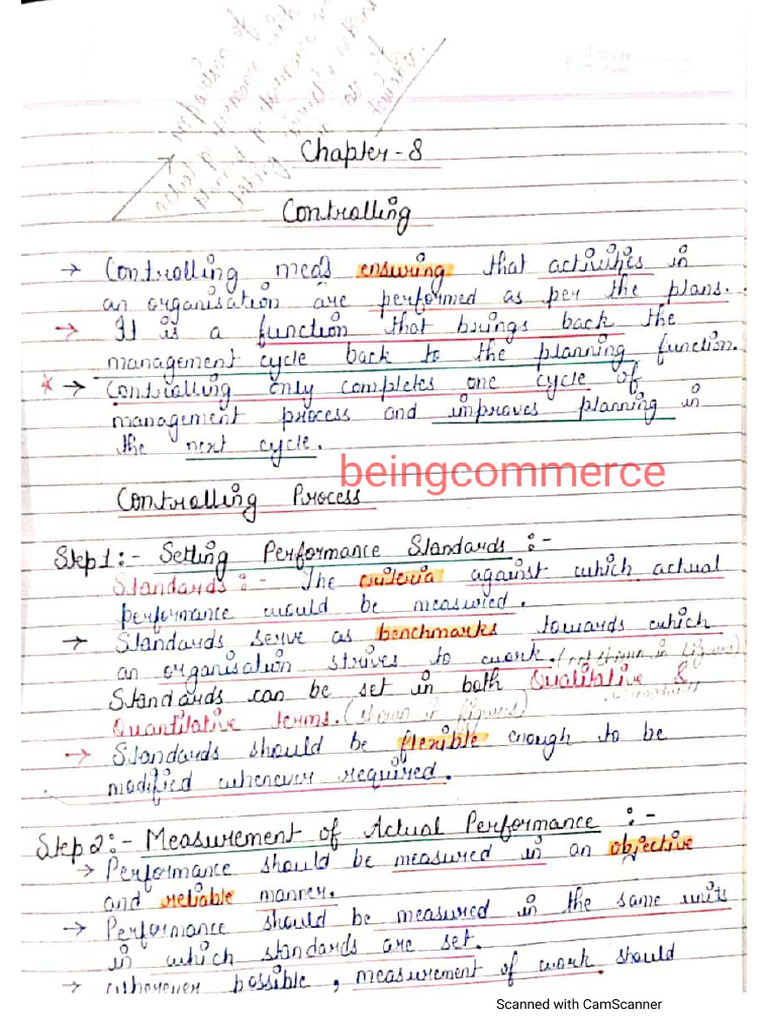 actual performance with
planned performance and
taking
Chapter-8
Controlling
→ Controlling meas ensuring that activities in
an organisation are performed as per the plans.
→ It is a function that brings back the
management cycle back to the planning function.
* → Controlling only completes one cycle of
management process and improves planning in
the next cycle.
beingcommerce
Controlling Process
Step 1:- Setting Performance Standards :-
Standards :- The criteria against which actual
performance would be measured.
→ Standards serve as benchmarks towards which
an organisation strives to work. (not shown in figures)
Standards can be set in both Qualitative &
Quantitative terms. (shown in figures)
→ Standards should be flexible enough to be
modified whenever required.
Step 2:- Measurement of Actual Performance :-
→ Performance should be measured in an objective
and reliable manner.
→ Performance should be measured in the same units
in which standards are set.
→ Wherever possible, measurement of work should
Scanned with CamScanner